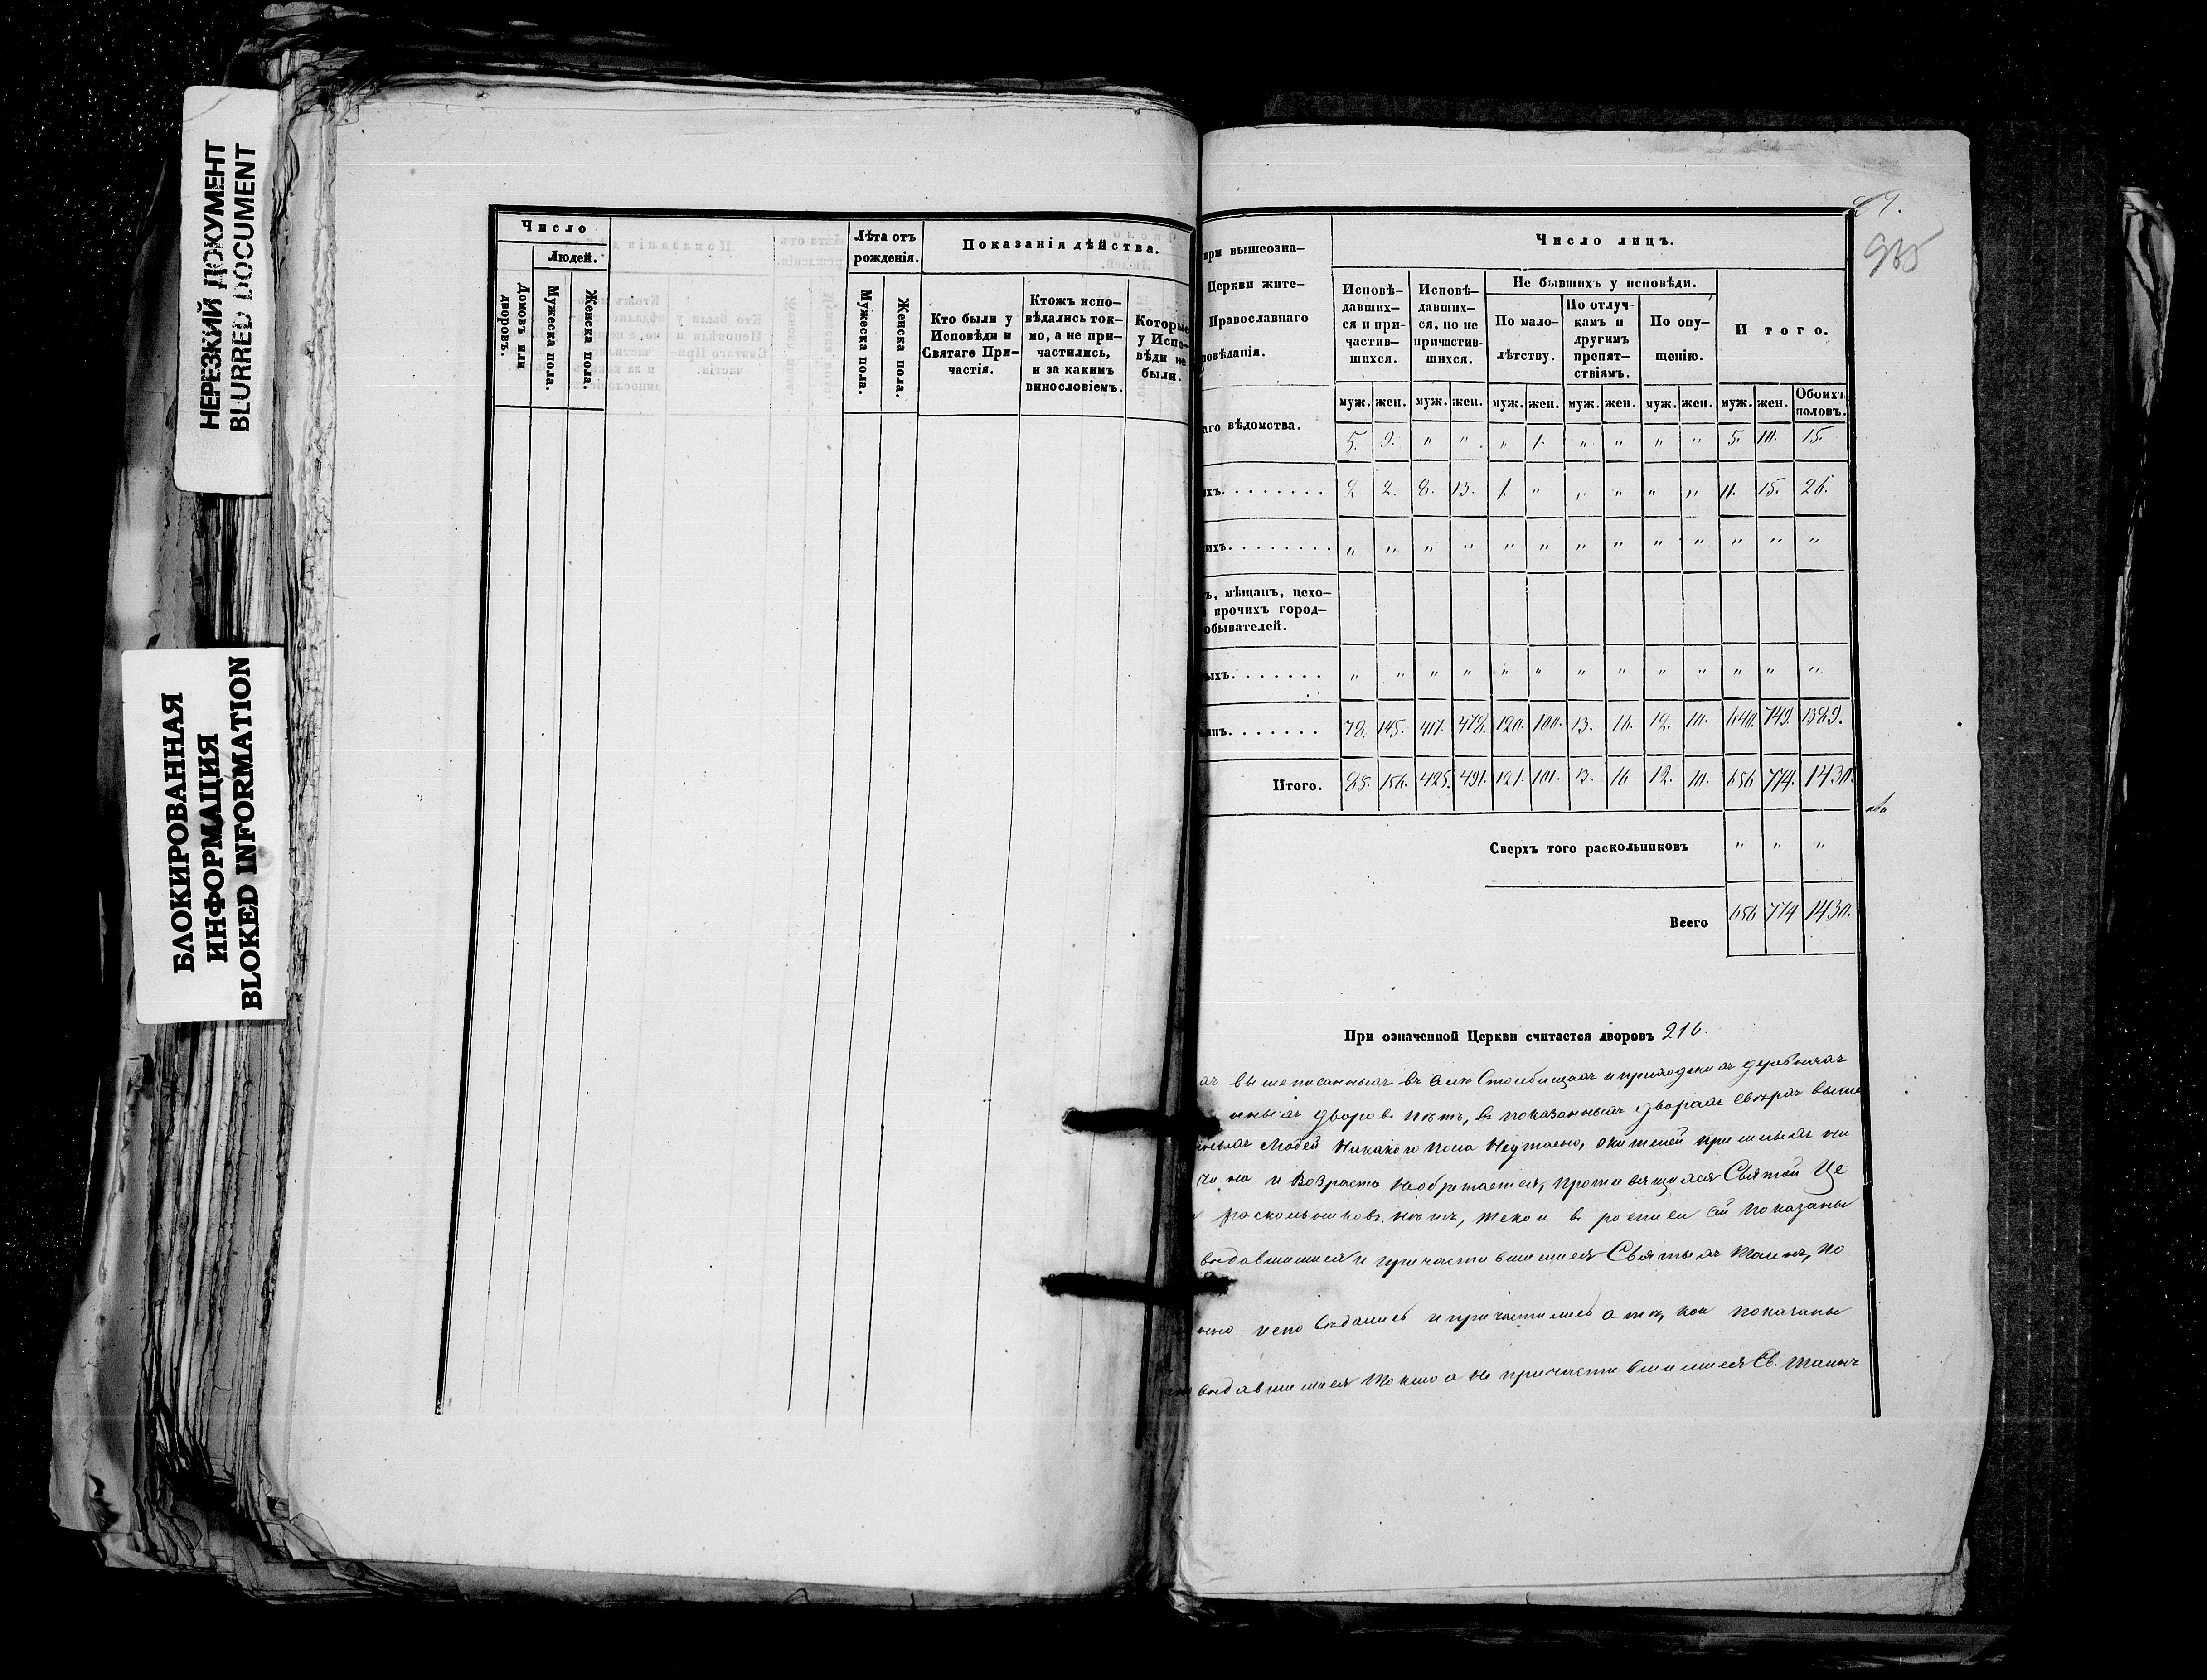 НЕРЕЗКИЙ ДОКУМЕНТ
BLURRED DOCUMENT
БЛОКИРОВАННАЯ
ИНФОРМАЦИЯ
BLOKED INFORMATION
Число
Людей.
Домовъ или
дворовъ.
Мужеска пола.
Женска пола.
Лѣта отъ
рожденія.
Мужеска пола.
Женска пола.
Показанія дѣйства.
Кто были у
Исповѣди и
Святаго При-
частія.
Ктожъ испо-
вѣдались ток-
мо, а не при-
частились,
и за какимъ
винословіемъ.
Которые
у Испо-
вѣди не
были.
при вышеозна-
Церкви жите-
Православнаго
повѣданія.
Число лицъ.
Исповѣ-
давших-
ся и при-
частив-
шихся.
Исповѣ-
давших-
ся, но не
причастив-
шихся.
Не бывшихъ у исповѣди.
По мало-
лѣтству.
По отлуч-
камъ и
другимъ
препят-
ствіямъ.
По опу-
щенію.
Итого.
муж. жен. муж. жен. муж. жен. муж. жен. муж. жен. муж. жен. Обоихъ
половъ.
аго вѣдомства. 5. 9. " " " 1. " " " " 5. 10. 15.
ихъ. . . . . . . . 2 2. 8. 13. 1. " " " " " 11. 15. 26.
ихъ. . . . . . . . " " " " " " " " " " " " "
ъ, мѣщанъ, цехо-
прочихъ город-
обывателей.
ыхъ. . . . . . . " " " " " " " " " " " " "
анъ. . . . . . . 78. 145. 417. 478. 120. 100. 13. 16. 12. 10. 640. 749. 1389.
Итого. 85. 156. 425. 491. 121. 101. 13. 16 12. 10. 656 774. 1430.
Сверхъ того раскольниковъ " " "
Всего 656 774 1430.
При означенной Церкви считается дворовъ 216.
вышеписанныхъ въ селѣ и приходскихъ деревняхъ
дворовъ нѣтъ, въ показанныхъ дворахъ выше
людей никакого пола неутаено,
и возраста необретается, противящихся Святой Це
раскольниковъ нѣтъ, в росписи сей показаны
вѣдавшимися и причастившимися Святыхъ Таинъ, по
исповѣдались и причастились а тѣ, кои показаны
вѣдавшимися токмо а не причастившимися Св. Таинъ